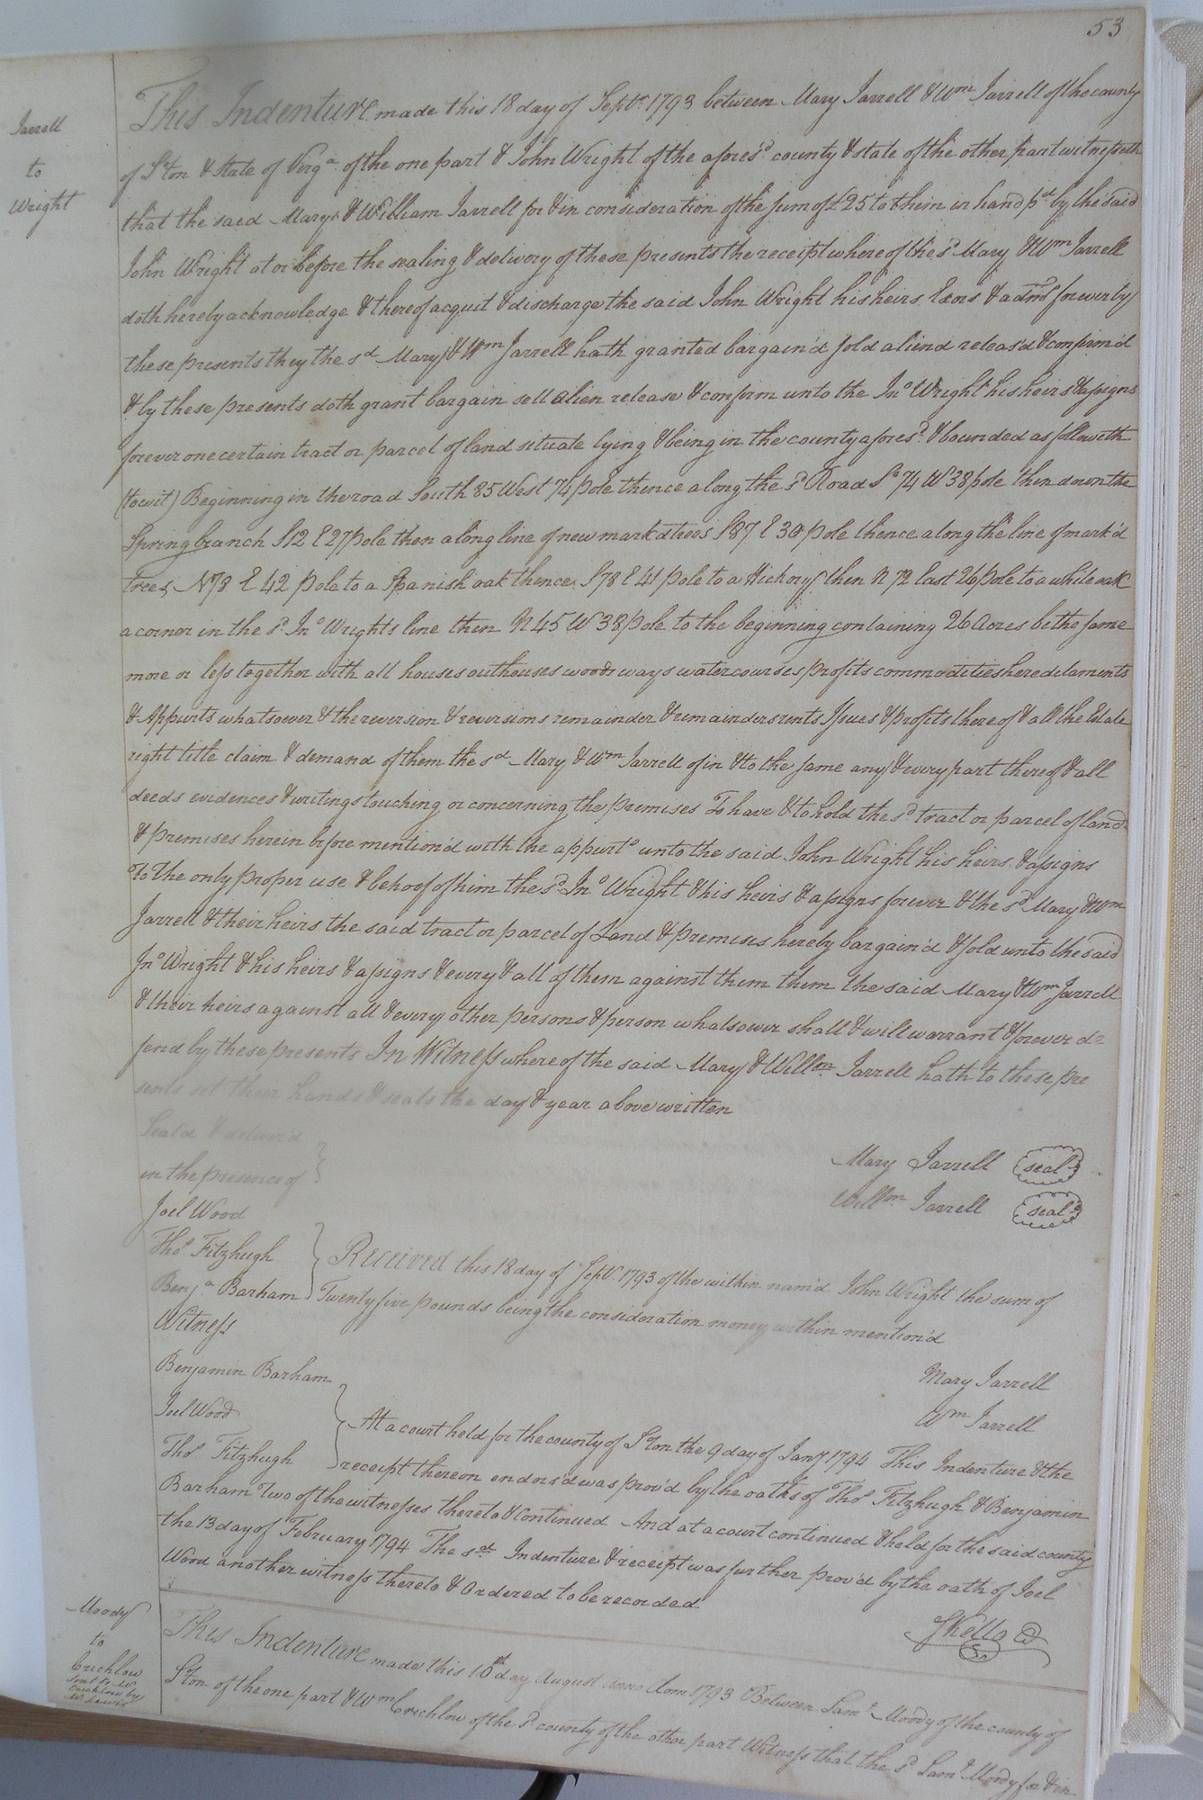 53
Jarrell
to
Wright
This Indenture made this 18 day of Septr. 1793 between Mary Jarrell & Wm Jarrell of the county
of S.ton & State of Virga. of the one part & John Wright of the aforesd. county & state of the other part witnesseth
that the said Mary & William Jarrell for & in consideration of the sum of £25 to them in hand pd. by the said
John Wright at or before the sealing & delivery of these presents the receipt whereof the sd. Mary & Wm Jarrell
doth hereby acknowledge & thereof acquit & discharge the said John Wright his heirs Exrs & admrs forever by
these presents they the sd. Mary & Wm Jarrell hath granted bargain'd sold aliend releas'd & confirm'd
& by these presents doth grant bargain sell alien release & confirm unto the Jno. Wright his heirs & assigns
forever one certain tract or parcel of land situate lying & being in the county aforesd. & bounded as followeth
(to wit) Beginning in the road South 85 West 74 pole thence along the sd. Road So. 74 W 38 pole then down the
Spring branch S 12 E 27 pole then along line of new markd trees S 87 E 30 pole thence along the line of mark'd
trees N 78 E 42 pole to a Spanish oak thence S 78 E 41 pole to a Hickory then N 72 East 26 pole to a white oak
a corner in the sd. Jno. Wrights line then N 45 W 38 pole to the beginning containing 26 Acres be the same
more or less together with all houses outhouses woods ways watercourses profits commodities hereditaments
& Appurts whatsoever & the reversion & reversions remainder & remainders rents Issues & profits thereof & all the Estate
right title claim & demand of them the sd. Mary & Wm Jarrell of in & to the same any & every part thereof & all
deeds evidences & writings touching or concerning the premises To have & to hold the sd. tract or parcel of land
& premises herein before mention'd with the appurts unto the said John Wright his heirs & assigns
to the only proper use & behoof of him the sd. Jno. Wright & his heirs & assigns forever & the sd. Mary & Wm
Jarrell & their heirs the said tract or parcel of Land & premises hereby bargain'd & sold unto the said
Jno. Wright & his heirs & assigns & every & all of them against them them the said Mary & Wm Jarrell
& their heirs against all & every other persons & person whatsoever shall & will warrant & forever de=
fend by these presents In Witness whereof the said Mary & Willm. Jarrell hath to these pre
sents set their hands & seals the day & year above written
Seal'd & deliver'd
in the presence of
Mary Jarrell seal
Willm. Jarrell seal
Joel Wood
Thos. Fitzhugh
Benja. Barham
Received this 18 day of Septr. 1793 of the within nam'd John Wright the sum of
Twenty five pounds being the consideration money within mention'd
Witness
Mary Jarrell
Wm Jarrell
Benjamin Barham
Joel Wood
Thos. Fitzhugh
At a court held for the county of S.ton the 9 day of Jany 1794 This Indenture & the
receipt thereon endors'd was prov'd by the oaths of Thos. Fitzhugh & Benjamin
Barham two of the witnesses thereto & Continued And at a court continued & held for the said county
the 13 day of February 1794 The sd. Indenture & receipt was further prov'd by the oath of Joel
Wood another witness thereto & Ordered to be recorded
S Kello
Moody
to
Crichlow
This Indenture made this 10th day August Dom 1793 Between Saml. Moody of the county of
S.ton of the one part & Wm Crichlow of the sd. county of the other part Witness that the sd. Saml. Moody for & in